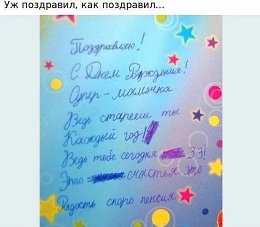 Уж поздравил, как поздравил...
Поздравляю!
С Днем Рождения!
Супер-мамочка
Ведь стареешь ты
Каждый год!
Ведь тебе сегодня 33!
Это счастья это
Радость скоро пенсия